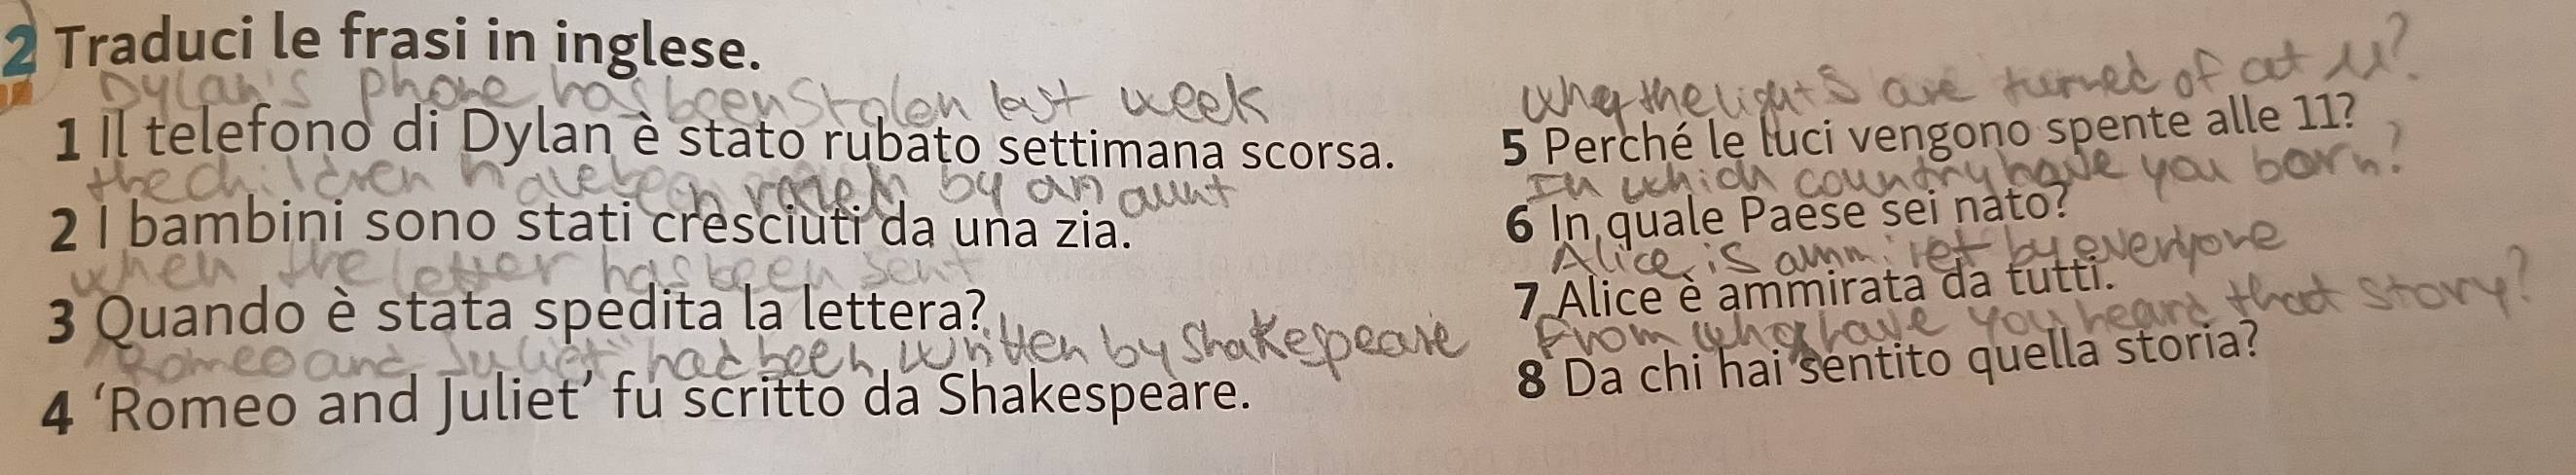 2 Traduci le frasi in inglese.
Dylan's phone has been stolen last week
1 Il telefono di Dylan è stato rubato settimana scorsa.
the children have been by an aunt
2 I bambini sono stati cresciuti da una zia.
when the letter has been sent
3 Quando è stata spedita la lettera?
"Romeo and Juliet" had been written by Shakespeare
4 ‘Romeo and Juliet’ fu scritto da Shakespeare.
why the lights are turned of at 11?
5 Perché le luci vengono spente alle 11?
In which country have you born?
6 In quale Paese sei nato?
Alice is by everyone
7 Alice è ammirata da tutti.
From who have you heard that story?
8 Da chi hai sentito quella storia?